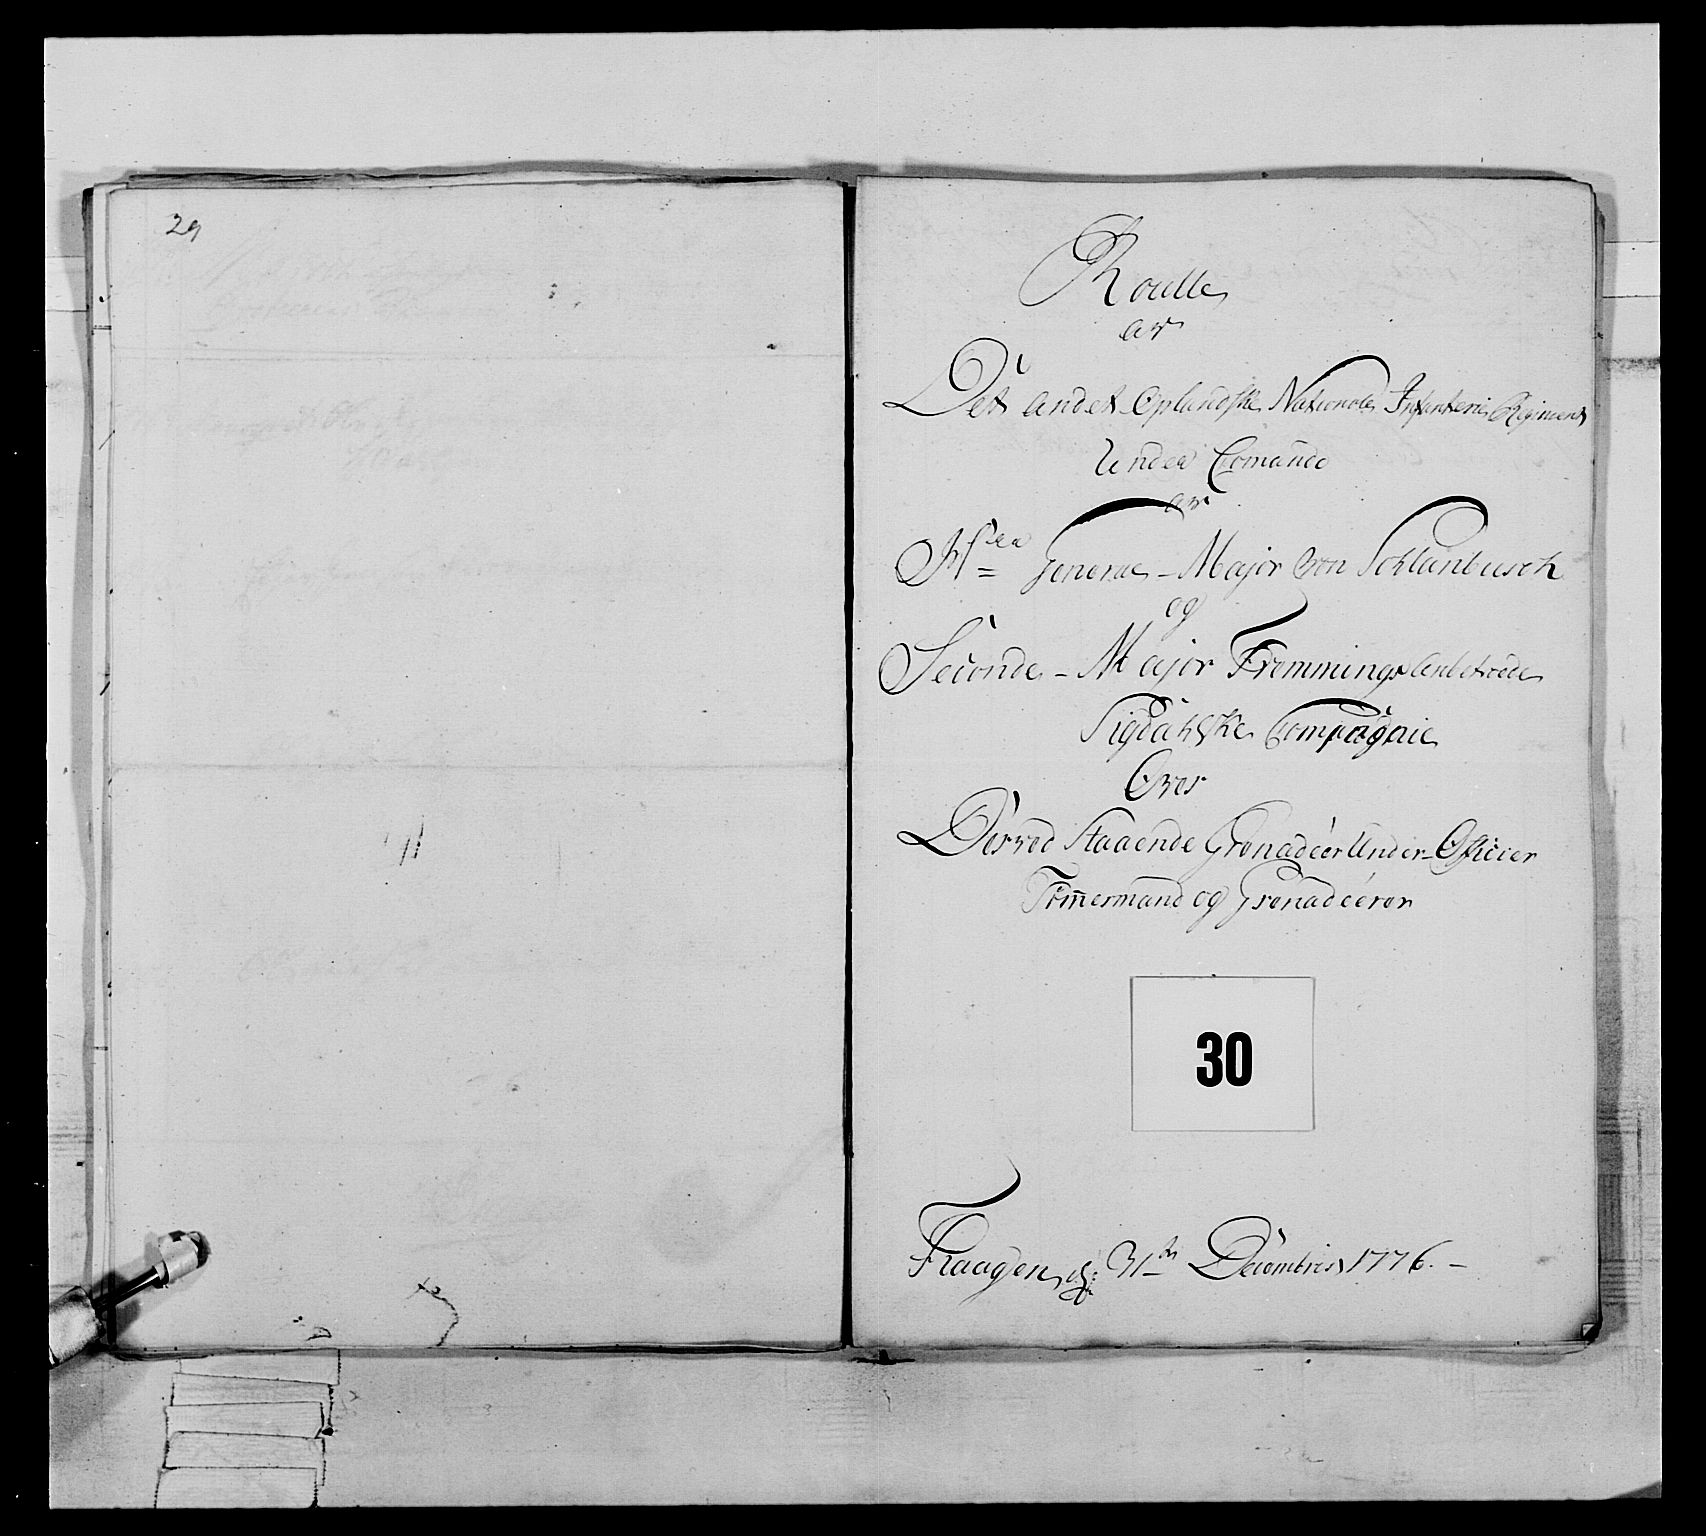 29
Roulle
av
Det andet Oplandske Nationale Infanterie Regiment
Under Comando
av
Hr General-Major von Schlanbusch
og
Seconde-Major Fremmings anbetroede
Sigdahlske Compagnie
Over
Derved Staaende Grenadeer Under-Officier
Tim̄ermand og Grenadeerer
30
Fraagen d: 31te Decembris 1776.-